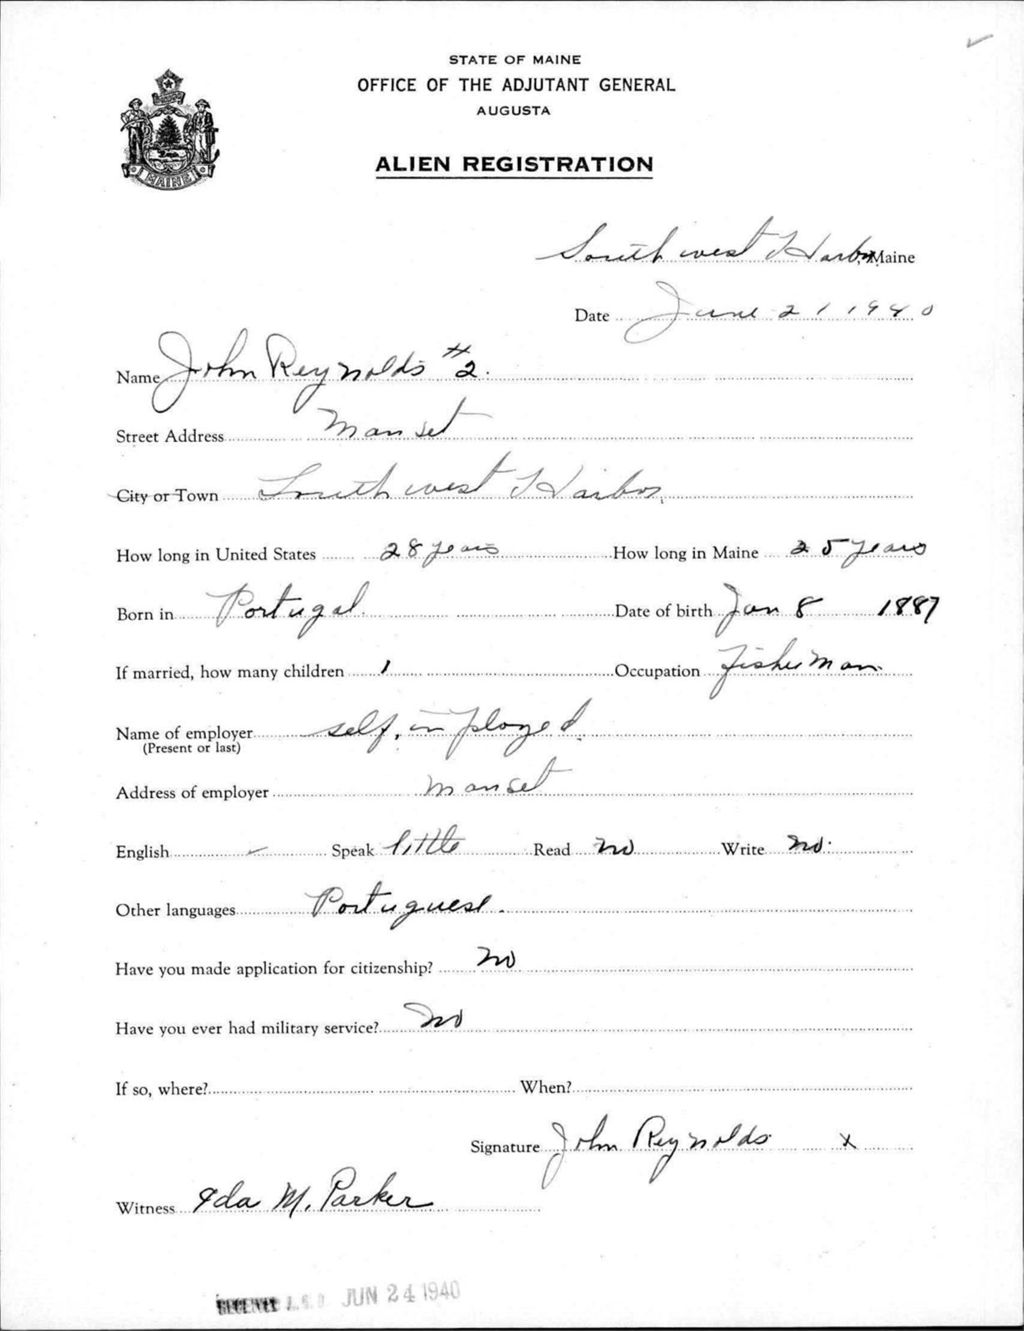 STATE OF MAINE
OFFICE OF THE ADJUTANT GENERAL
AUGUSTA
ALIEN REGISTRATION
MAINE
South west Harbor, Maine
Date June 21 1940
Name John Reynolds #2.
Street Address Manset
City or Town South west Harbor,
How long in United States 28 years How long in Maine 25 years
Born in Portugal. Date of birth Jan 8 1887
If married, how many children 1 Occupation fisherman
Name of employer self, inployed.
(Present or last)
Address of employer Manset
English Speak little Read no Write no.
Other languages Portuguese.
Have you made application for citizenship? No
Have you ever had military service? No
If so, where? When?
Signature John Reynolds x
Witness Ida M. Parker
A.G.O JUN 24 1940